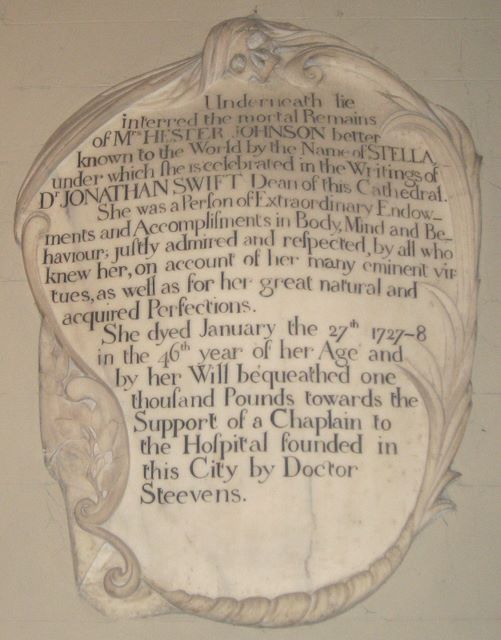 Underneath lie
interred the mortal Remains
of Mrs HESTER JOHNSON better
known to the World by the Name of STELLA,
under which ſhe is celebrated in the Writings of
Dr JONATHAN SWIFT Dean of this Cathedral.
She was a Perſon of Extraordinary Endow-
ments and Accompliſments in Body, Mind and Be-
haviour; juſtly admired and reſpected, by all who
knew her, on account of her many eminent vir
tues, as well as for her great natural and
acquired Perfections.
She dyed January the 27th 1727-8
in the 46th year of her Age and
by her Will bequeathed one
thouſand Pounds towards the
Support of a Chaplain to
the Hoſpital founded in
this City by Doctor
Steevens.